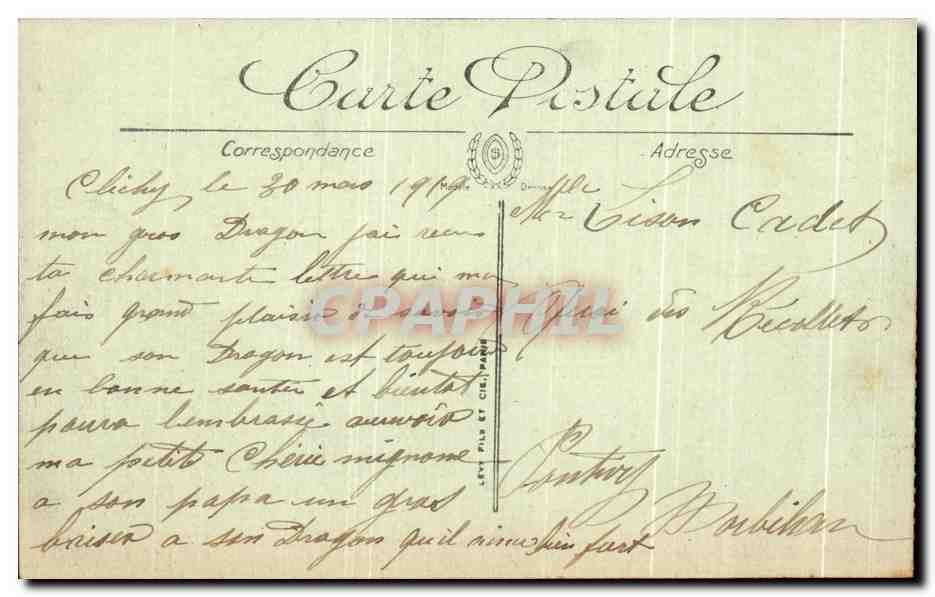 Carte Postale
Correspondance
Adresse
Clichy le 30 mars 1919
mon gros Dragon jai recus
ta charmante lettre qui ma
fais grand plaisir de savoir
que son Dragon est toujour
en bonne santer et bientot
poura lembrasé aurevoir
ma petit Cherie mignone
a son papa un gros
baiser a son Dragon qu'il aime bien fort
Lison Cadet
Quai des Récollets
Pontivy
Morbihan
LÉVY FILS ET CIE, PARIS
CPAPHIL